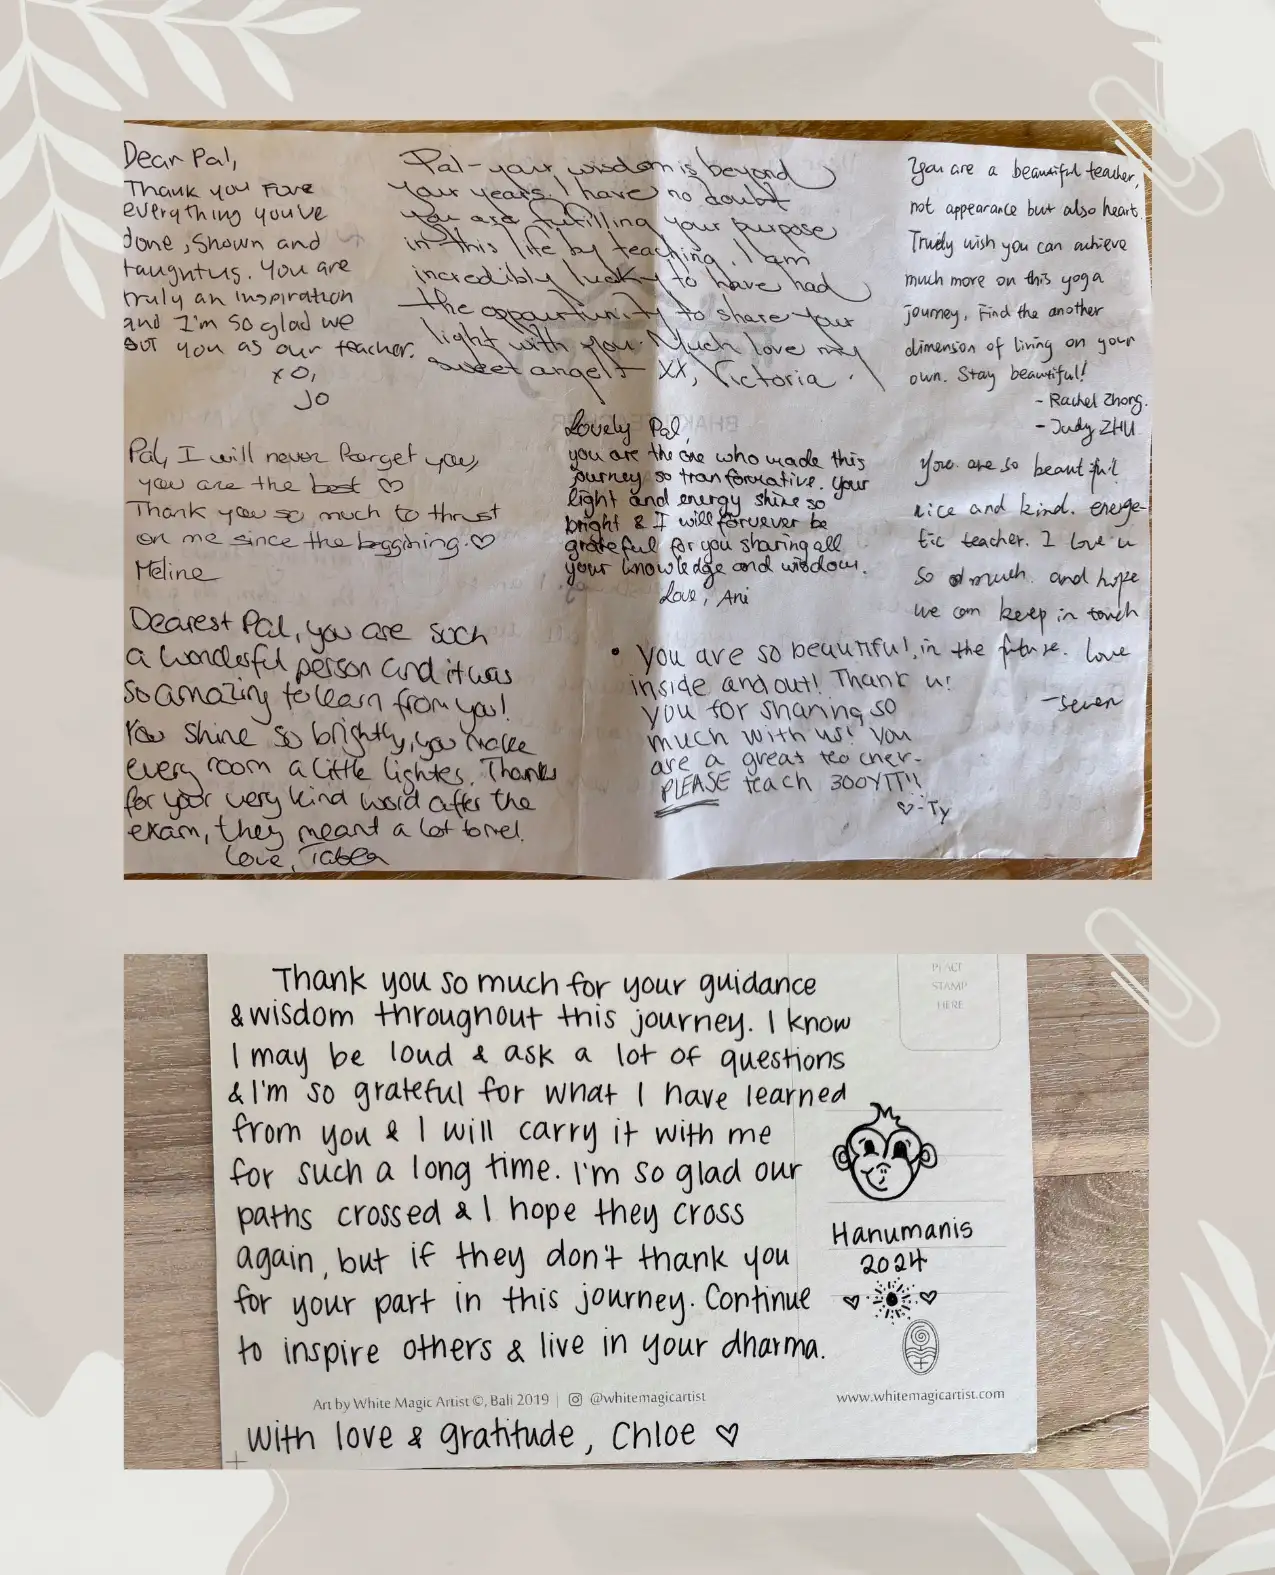 Dear Pal,
Thank you fore
everything you've
done, shown and
taught us. You are
truly an inspiration
and I'm so glad we
you as our teacher.
XO,
Jo
Pal - your wisdom is beyond
your years. I have no doubt
you are fulfilling your purpose
in this life by teaching. I am
incredibly lucky to have had
the oppourtunity to share your
light with you. Much love my
sweet angel XX, Victoria.
You are a beautiful teacher,
not appearance but also heart.
Truely wish you can achieve
much more on this yoga
journey, Find the another
dimension of living on your
own. Stay beautiful!
- Rachel Zhong.
- Judy ZHU
Pal, I will never forget you,
you are the best ♡
Thank you so much to thrust
on me since the beggining. ♡
Meline
Lovely Pal,
you are the one who made this
journey so tranformative. Your
light and energy shine so
bright & I will foruever be
grateful for you sharing all
your knowledge and wisdom.
Love, Ani
You are so beautiful
nice and kind. energe-
tic teacher. I love u
so much and hope
we can keep in touch
in the future. Love
u!
- seven
Dearest Pal, you are such
a wonderful person and it was
so amazing to learn from you!
You shine so brightly, you make
every room a little lighter. Thanks
for your very kind word after the
exam, they meant a lot to me!
Love, Tabea
• You are so beautiful,
inside and out! Thank
you for sharing so
much with us! You
are a great teacher-
PLEASE teach 300YTT!!
♡-Ty
PLACE
STAMP
HERE
Thank you so much for your guidance
& wisdom throughout this journey. I know
I may be loud & ask a lot of questions
& I'm so grateful for what I have learned
from you & I will carry it with me
for such a long time. I'm so glad our
paths crossed & I hope they cross
again, but if they don't thank you
for your part in this journey. Continue
to inspire others & live in your dharma.
Hanumanis
2024
Art by White Magic Artist ©, Bali 2019 | @whitemagicartist
www.whitemagicartist.com
With love & gratitude, Chloe ♡